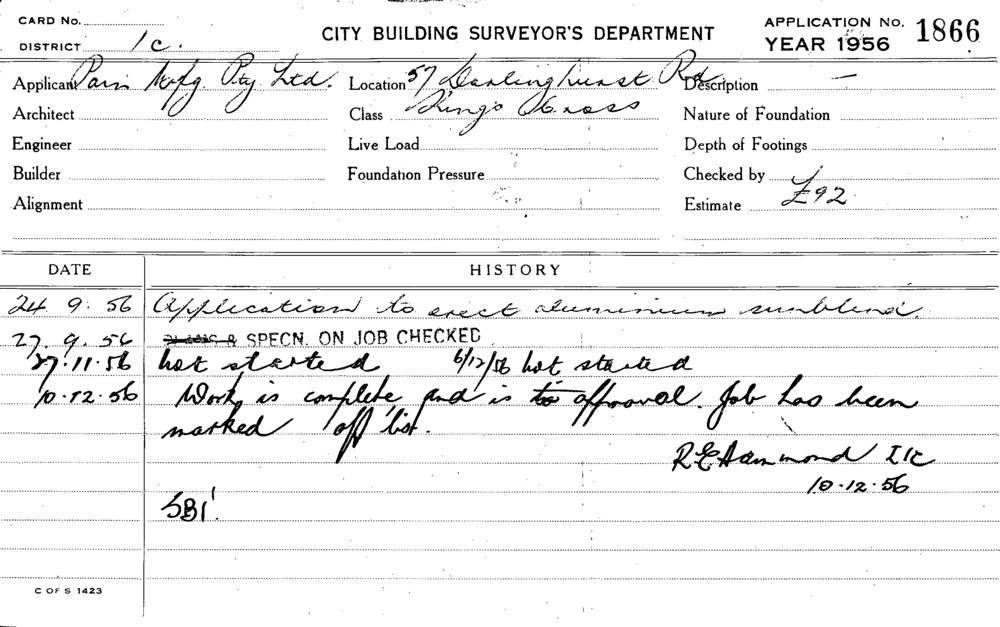 CARD No.
DISTRICT 1c.
CITY BUILDING SURVEYOR'S DEPARTMENT
APPLICATION No. 1866
YEAR 1956
Applicant Mfg. Pty Ltd. Location 57 Darlinghurst Rd. Description —
Architect Class Kings Cross Nature of Foundation
Engineer Live Load Depth of Footings
Builder Foundation Pressure Checked by
Alignment Estimate £92
DATE HISTORY
24. 9. 56 Application to erect aluminium sunblind.
27. 9. 56 PLANS & SPECN. ON JOB CHECKED
27.11.56 Not started 6/12/56 Not started
10.12.56 Work is complete and is to approval. Job has been
marked off list.
R E Hammond I1C
10.12.56
SBI.
C OF S 1423